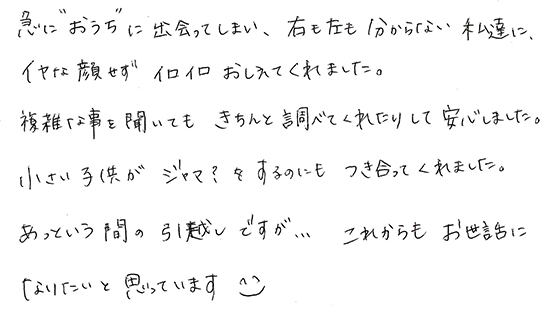 急に"おうち"に出会ってしまい、右も左も分からない私達に、
イヤな顔せずイロイロおしえてくれました。
複雑な事を聞いてもきちんと調べてくれたりして安心しました。
小さい子供がジャマ？をするのにもつき合ってくれました。
あっという間の引越しですが… これからもお世話に
なりたいと思っています ^^